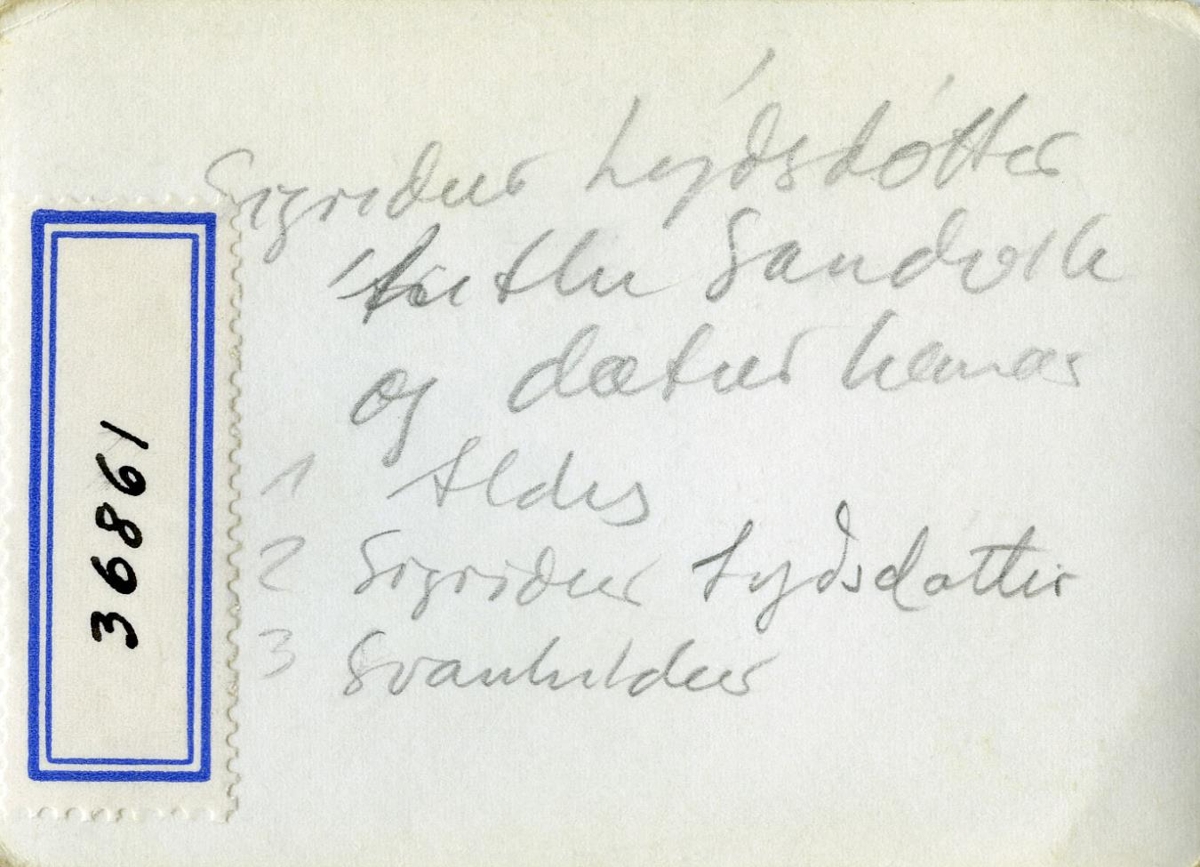 36861
Sigríður Lýðsdóttir
Litlu Sandvík
og dætur hennar
1 Aldís
2 Sigríður Lýðsdóttir
3 Svanhildur